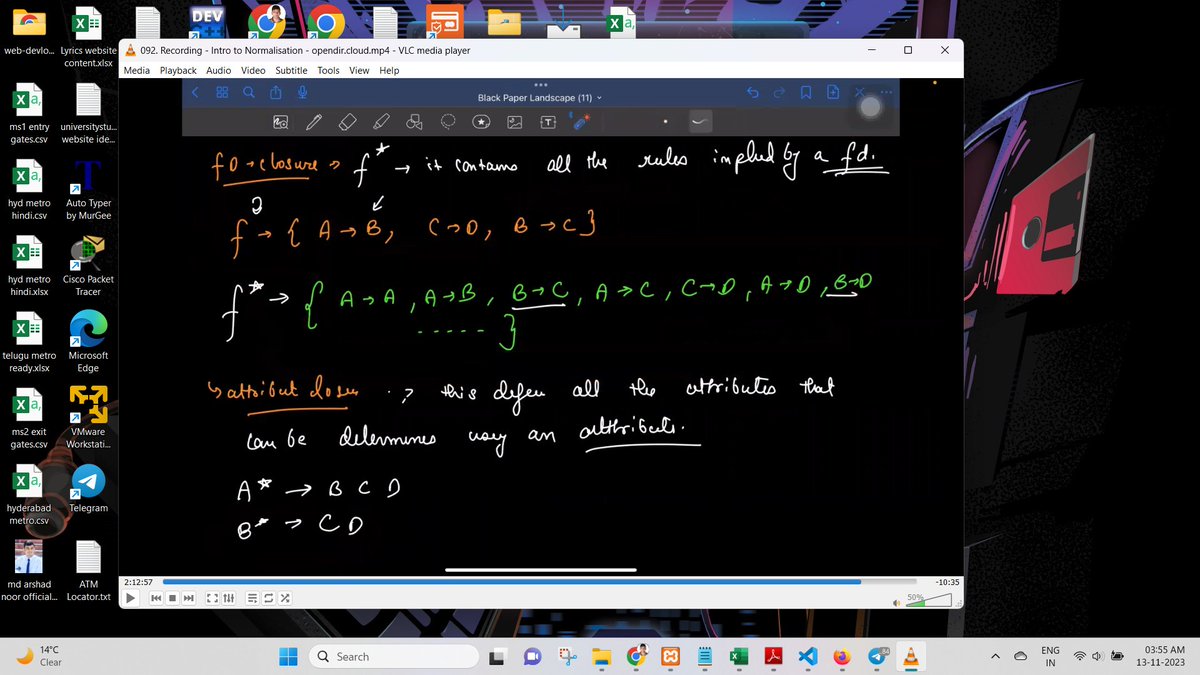 web-devlo...
Lyrics website
content.xlsx
DEV
C++
092. Recording - Intro to Normalisation - opendir.cloud.mp4 - VLC media player
Media Playback Audio Video Subtitle Tools View Help
Black Paper Landscape (11)
fD → closure → f* → it contains all the rules implied by a fd.
f → { A → B, C → D, B → C }
f* → { A → A , A → B , B → C , A → C , C → D , A → D , B → D
----- }
attribut closu this defen all the attributes that
can be determines using an attribute.
A* → B C D
B* → C D
2:12:57
-10:35
50%
ms1 entry
gates.csv
universitystu...
website ide...
hyd metro
hindi.csv
Auto Typer
by MurGee
hyd metro
hindi.xlsx
Cisco Packet
Tracer
telugu metro
ready.xlsx
Microsoft
Edge
ms2 exit
gates.csv
VMware
Workstati...
hyderabad
metro.csv
Telegram
md arshad
noor official...
ATM
Locator.txt
14°C
Clear
Search
84
ENG
IN
03:55 AM
13-11-2023